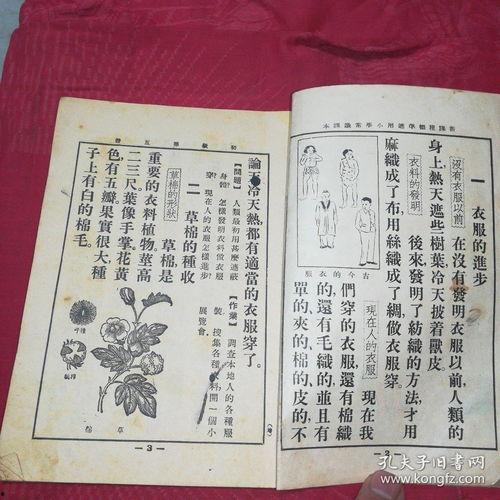 新課程標準適用小學常識課本
一 衣服的進步
沒有衣服以前 在沒有發明衣服以前，人類的
身上熱天遮些樹葉冷天披着獸皮。
衣料的發明 後來發明了紡織的方法，才用
麻織成了布，用絲織成了綢做衣服穿。
現在人的衣服 現在我
們穿的衣服，還有棉織
的，還有毛織的，並且有
單的，夾的，棉的，皮的。不
古今的衣服
—2—
初級第五冊
論天冷天熱，都有適當的衣服穿了。
【問題】人類最初用甚麼遮蔽
身體？怎樣發明衣料做衣服
穿？現在人的衣服怎樣進步？
【作業】調查本地人的各種服
裝。搜集各種衣料，開一個小
展覽會。
二 草棉的種收
草棉的形狀 草棉是
重要的衣料植物，莖高
二三尺，葉像手掌，花黃
色，有五瓣，果實很大，種
子上有白的棉毛。
草棉
—3—
孔夫子旧书网
www.kongfz.com